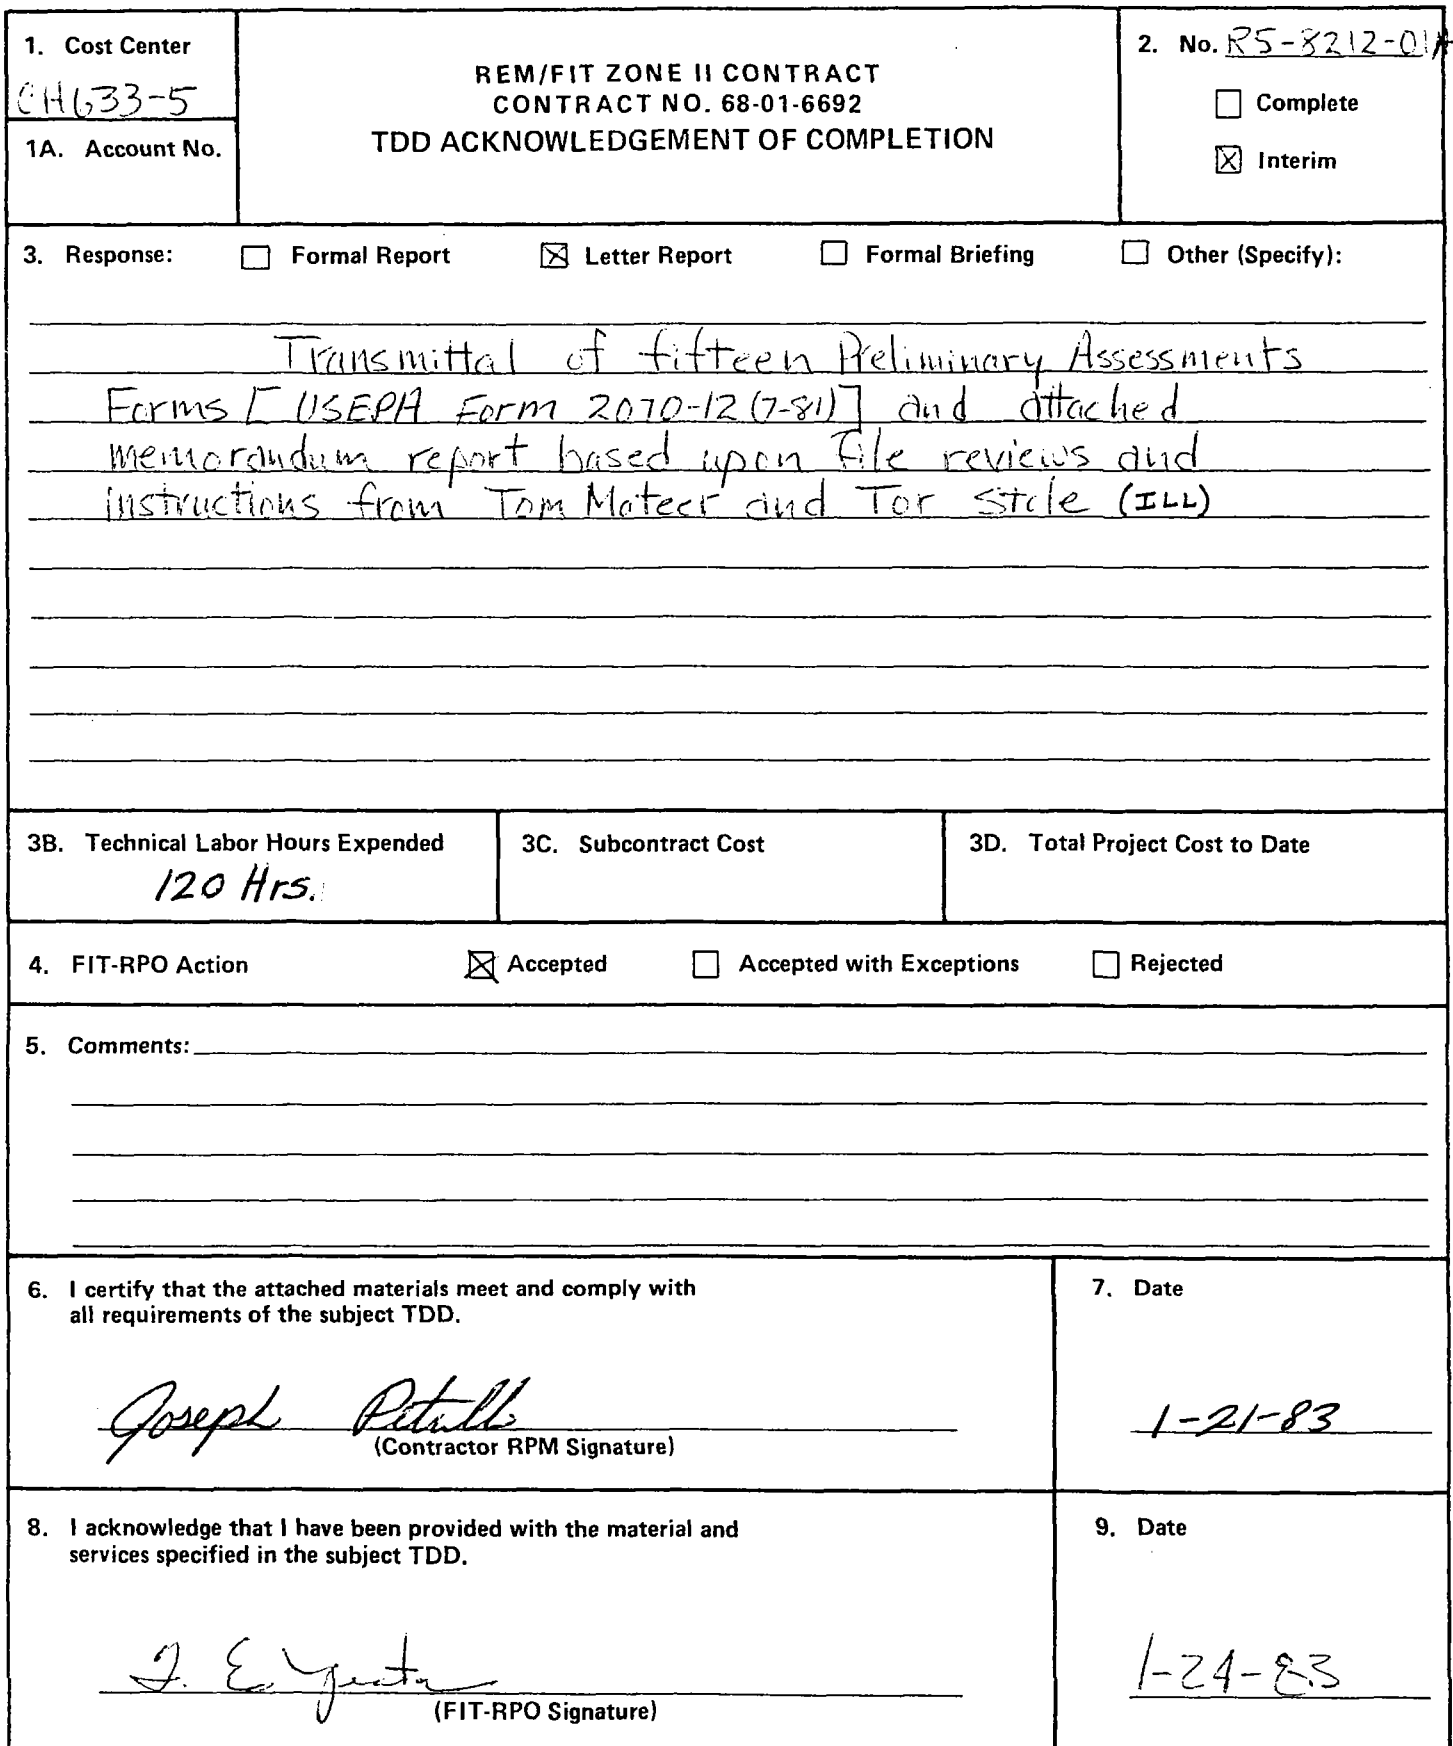 1. Cost Center
CH633-5
1A. Account No.
REM/FIT ZONE II CONTRACT
CONTRACT NO. 68-01-6692
TDD ACKNOWLEDGEMENT OF COMPLETION
2. No. R5-8212-01A
Complete
Interim
3. Response: Formal Report Letter Report Formal Briefing Other (Specify):
Transmittal of fifteen Preliminary Assessments
Forms [USEPA Form 2070-12 (7-81)] and attached
memorandum report based upon file reviews and
instructions from Tom Mateer and For State (ILL)
3B. Technical Labor Hours Expended
120 Hrs.
3C. Subcontract Cost
3D. Total Project Cost to Date
4. FIT-RPO Action Accepted Accepted with Exceptions Rejected
5. Comments:
6. I certify that the attached materials meet and comply with
all requirements of the subject TDD.
Joseph
(Contractor RPM Signature)
7. Date
1-21-83
8. I acknowledge that I have been provided with the material and
services specified in the subject TDD.
(FIT-RPO Signature)
9. Date
1-24-83